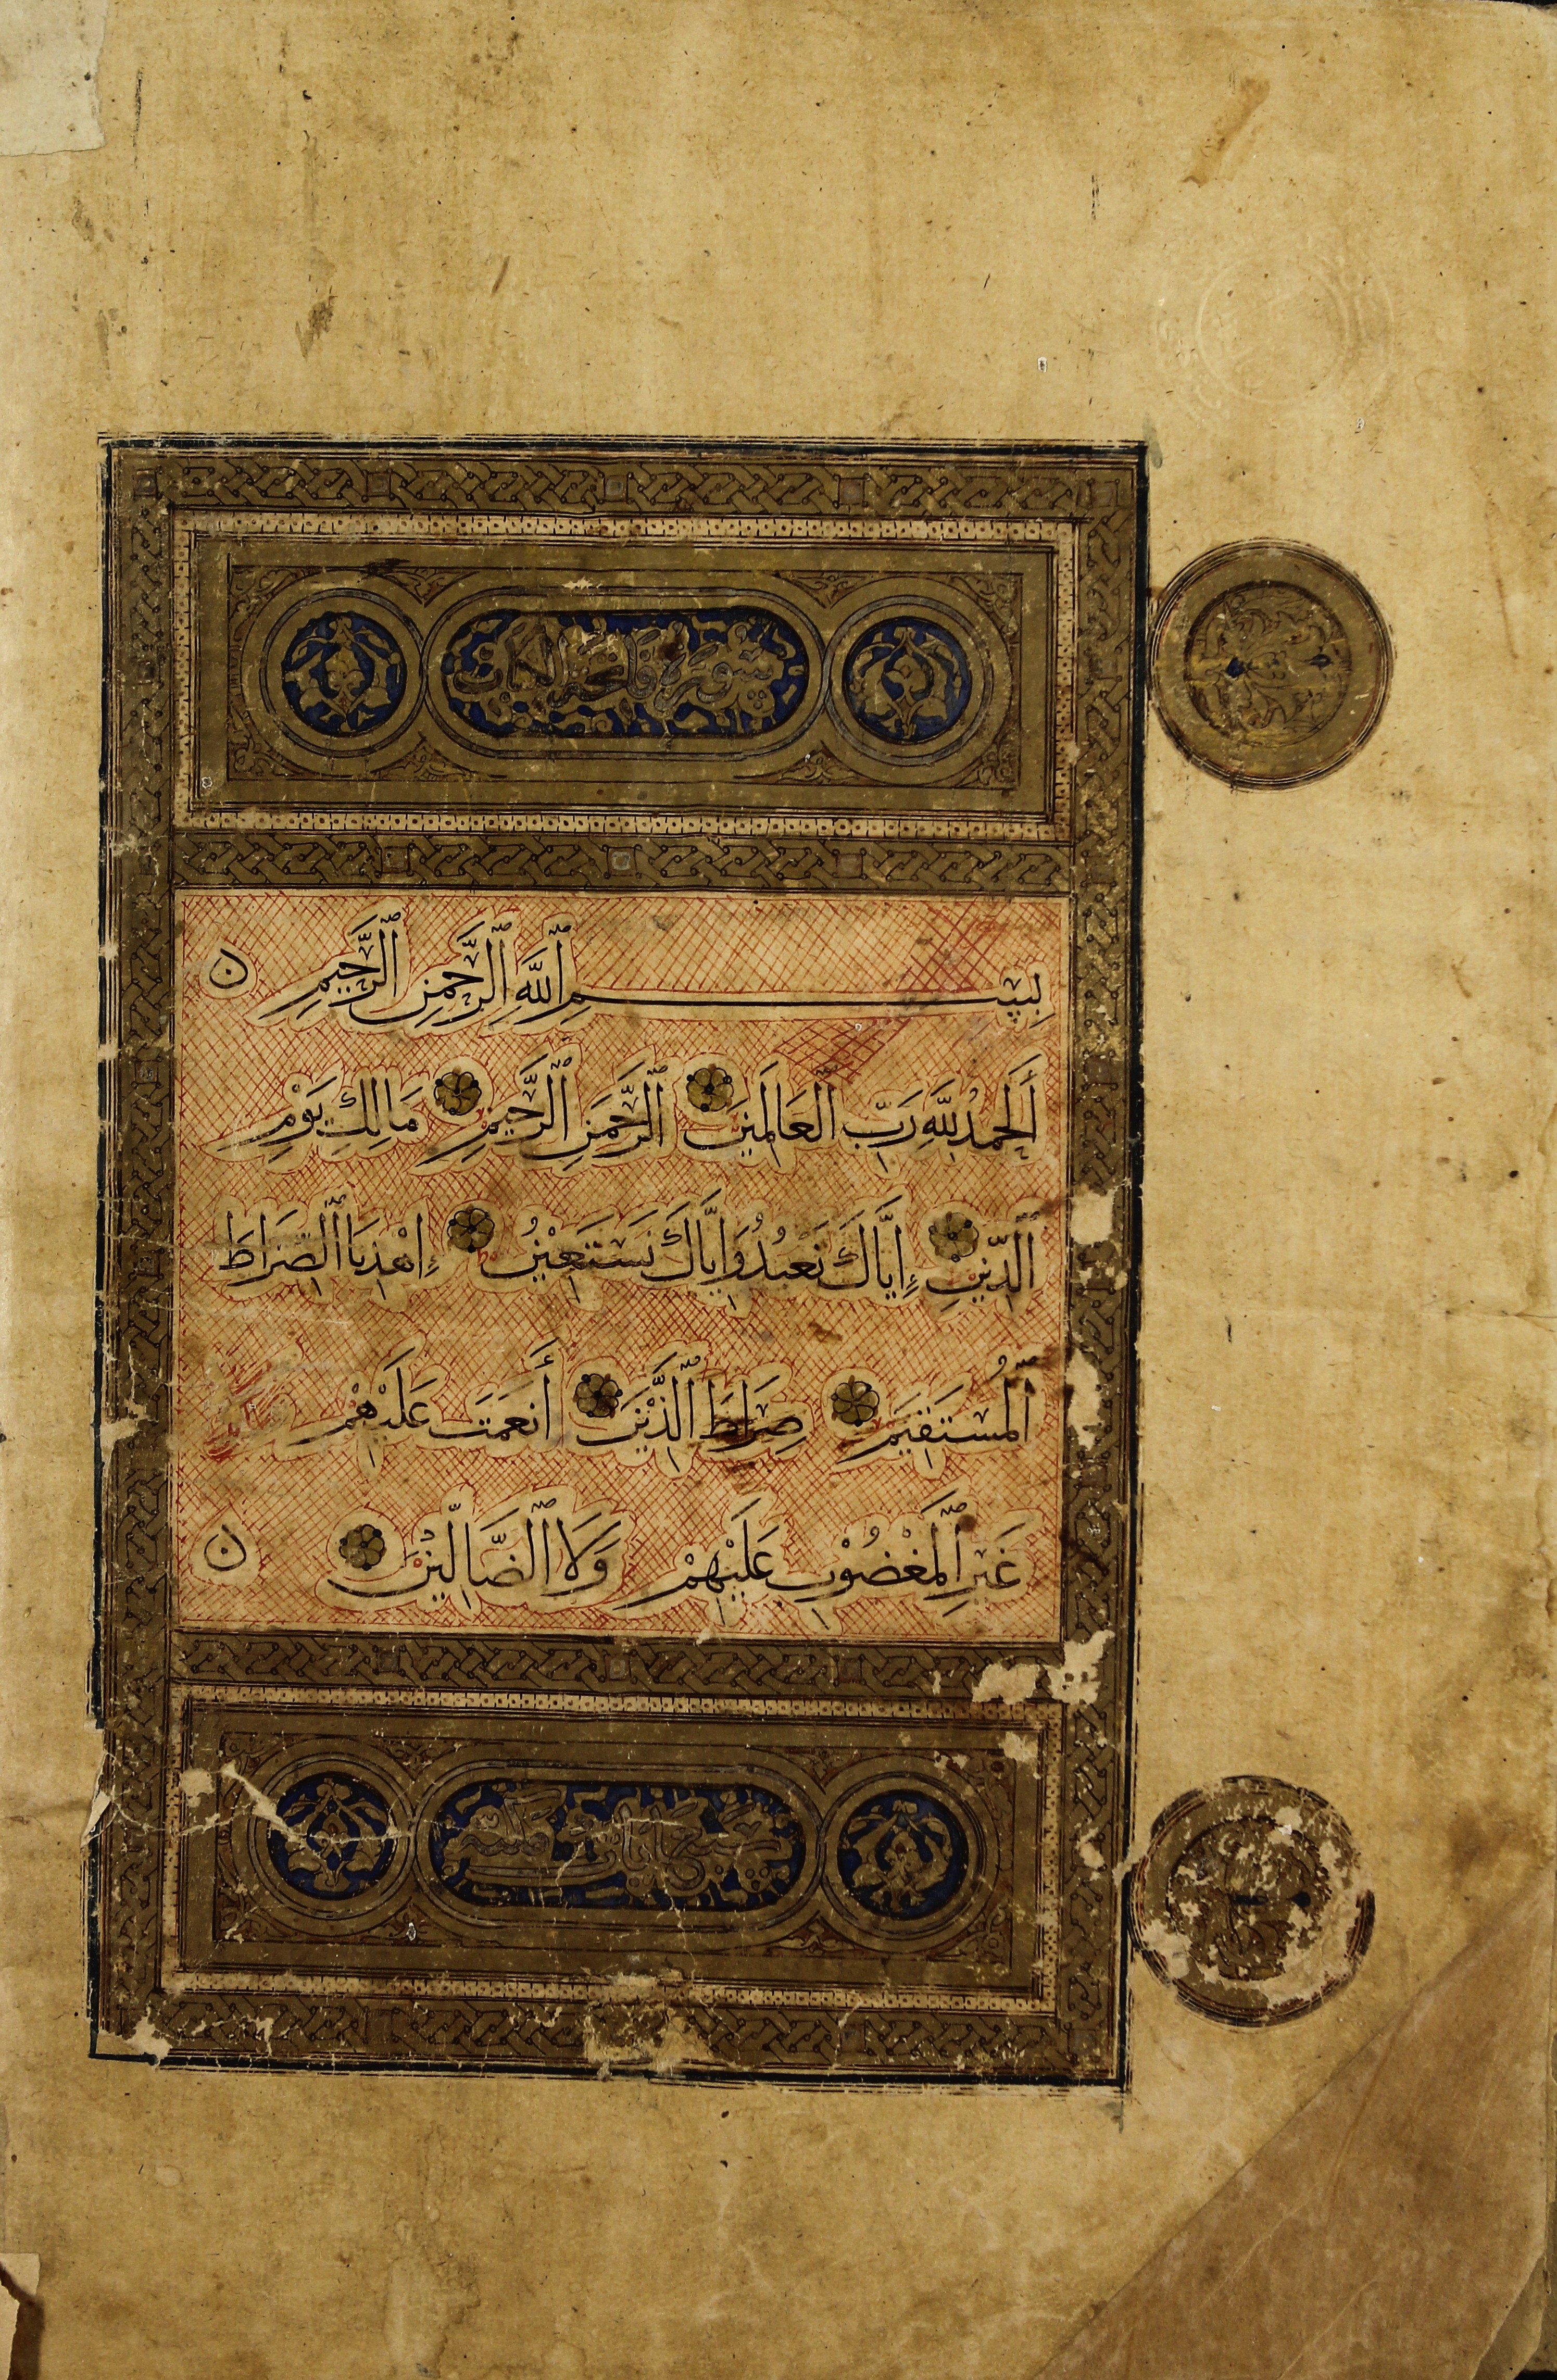 سورة فاتحة الكتاب
بِسْمِ ٱللَّهِ ٱلرَّحْمٰنِ ٱلرَّحِيمِ
أَلْحَمْدُ لِلَّهِ رَبِّ ٱلْعَالَمِينَ ٱلرَّحْمٰنِ ٱلرَّحِيمِ مَالِكِ يَوْمِ
ٱلدِّينِ إِيَّاكَ نَعْبُدُ وَإِيَّاكَ نَسْتَعِينُ إِهْدِنَا ٱلصِّرَاطَ
ٱلْمُسْتَقِيمَ صِرَاطَ ٱلَّذِينَ أَنْعَمْتَ عَلَيْهِمْ
غَيْرِ ٱلْمَغْضُوبِ عَلَيْهِمْ وَلَا ٱلضَّالِّينَ
سبع ايات